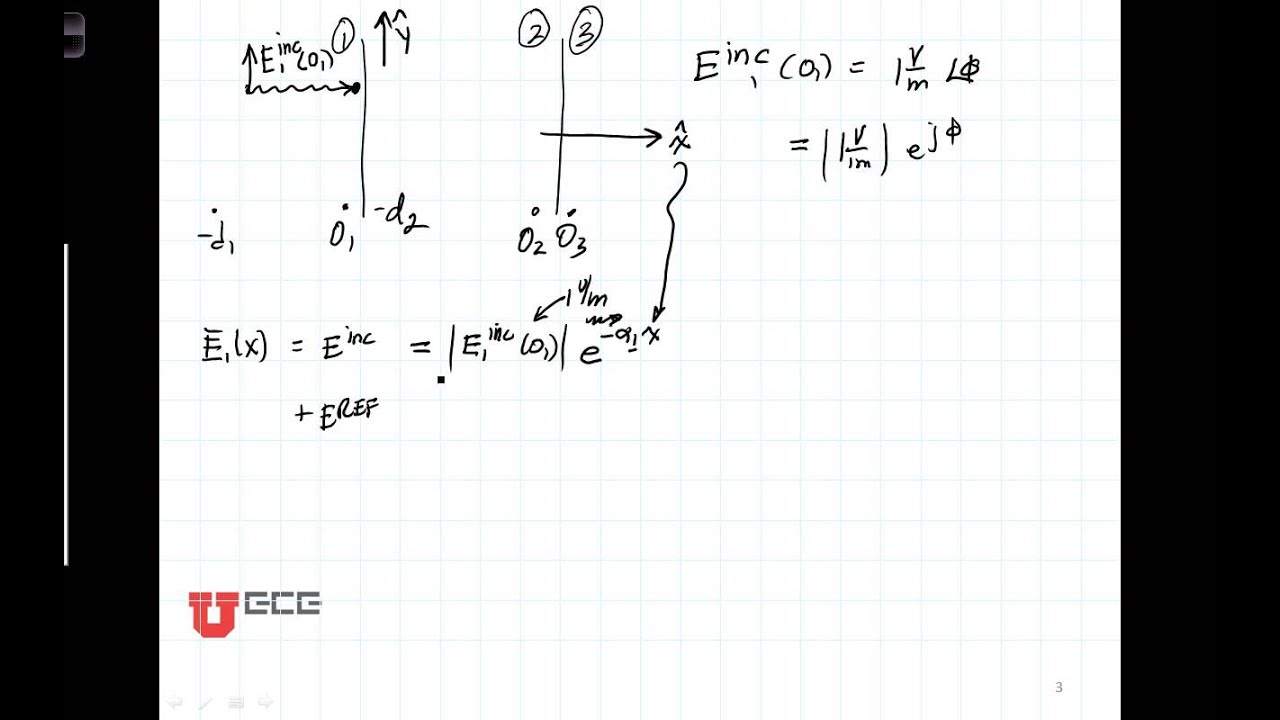 E₁^inc(0₁) ① ŷ ② ③
E^inc₁(0₁) = 1 V/m ∠ϕ
x̂
= |1 V/m| e^jϕ
-d₁ 0₁ -d₂ 0₂ 0₃
1 V/m
E₁(x) = E^inc = |E₁^inc(0₁)| e^-α₁x
+ E^REF
UECE
3